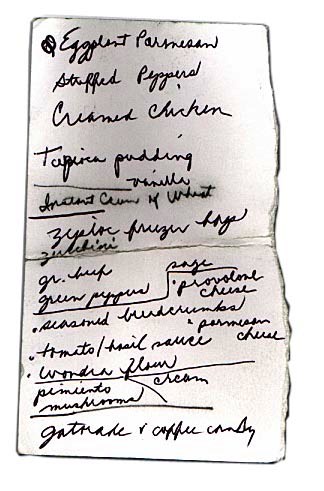 Eggplant Parmesan
Stuffed Peppers
Creamed Chicken
Tapioca pudding
vanilla
Instant Cream of Wheat
ziploc freezer bags
zucchini
gr. beef sage
green peppers • provolone cheese
• seasoned breadcrumbs
• parmesan cheese
• tomato/basil sauce
• Wondra flour
pimiento cream
mushrooms
gatorade & coffee candy